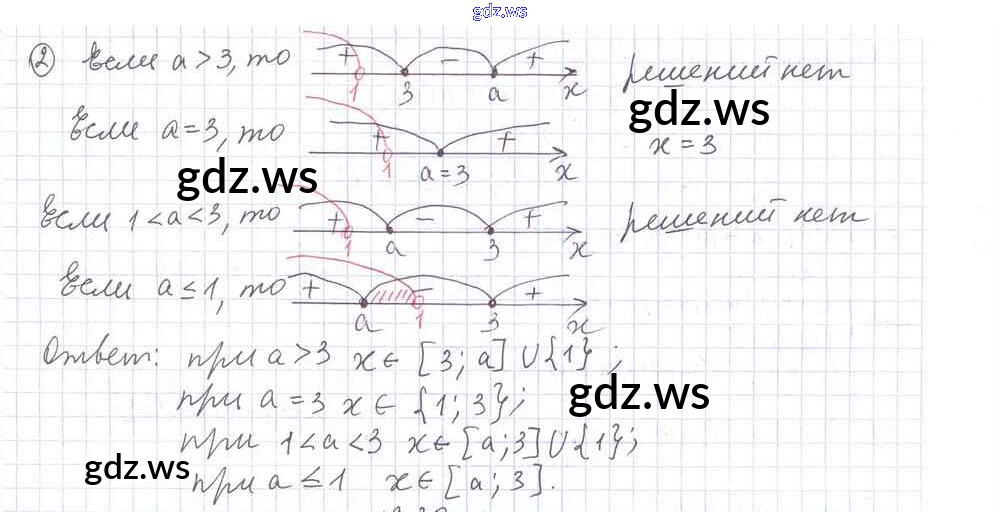 gdz.ws
② Если a > 3, то + - + 1 3 a x решений нет
gdz.ws
Если a = 3, то + + 1 a = 3 x x = 3
gdz.ws
Если 1 < a < 3, то + - + 1 a 3 x решений нет
Если a ≤ 1, то + - + a 1 3 x
Ответ: при a > 3 x ∈ [3; a] ∪ {1};
gdz.ws
при a = 3 x ∈ {1; 3};
при 1 < a < 3 x ∈ [a; 3] ∪ {1};
gdz.ws
при a ≤ 1 x ∈ [a; 3].